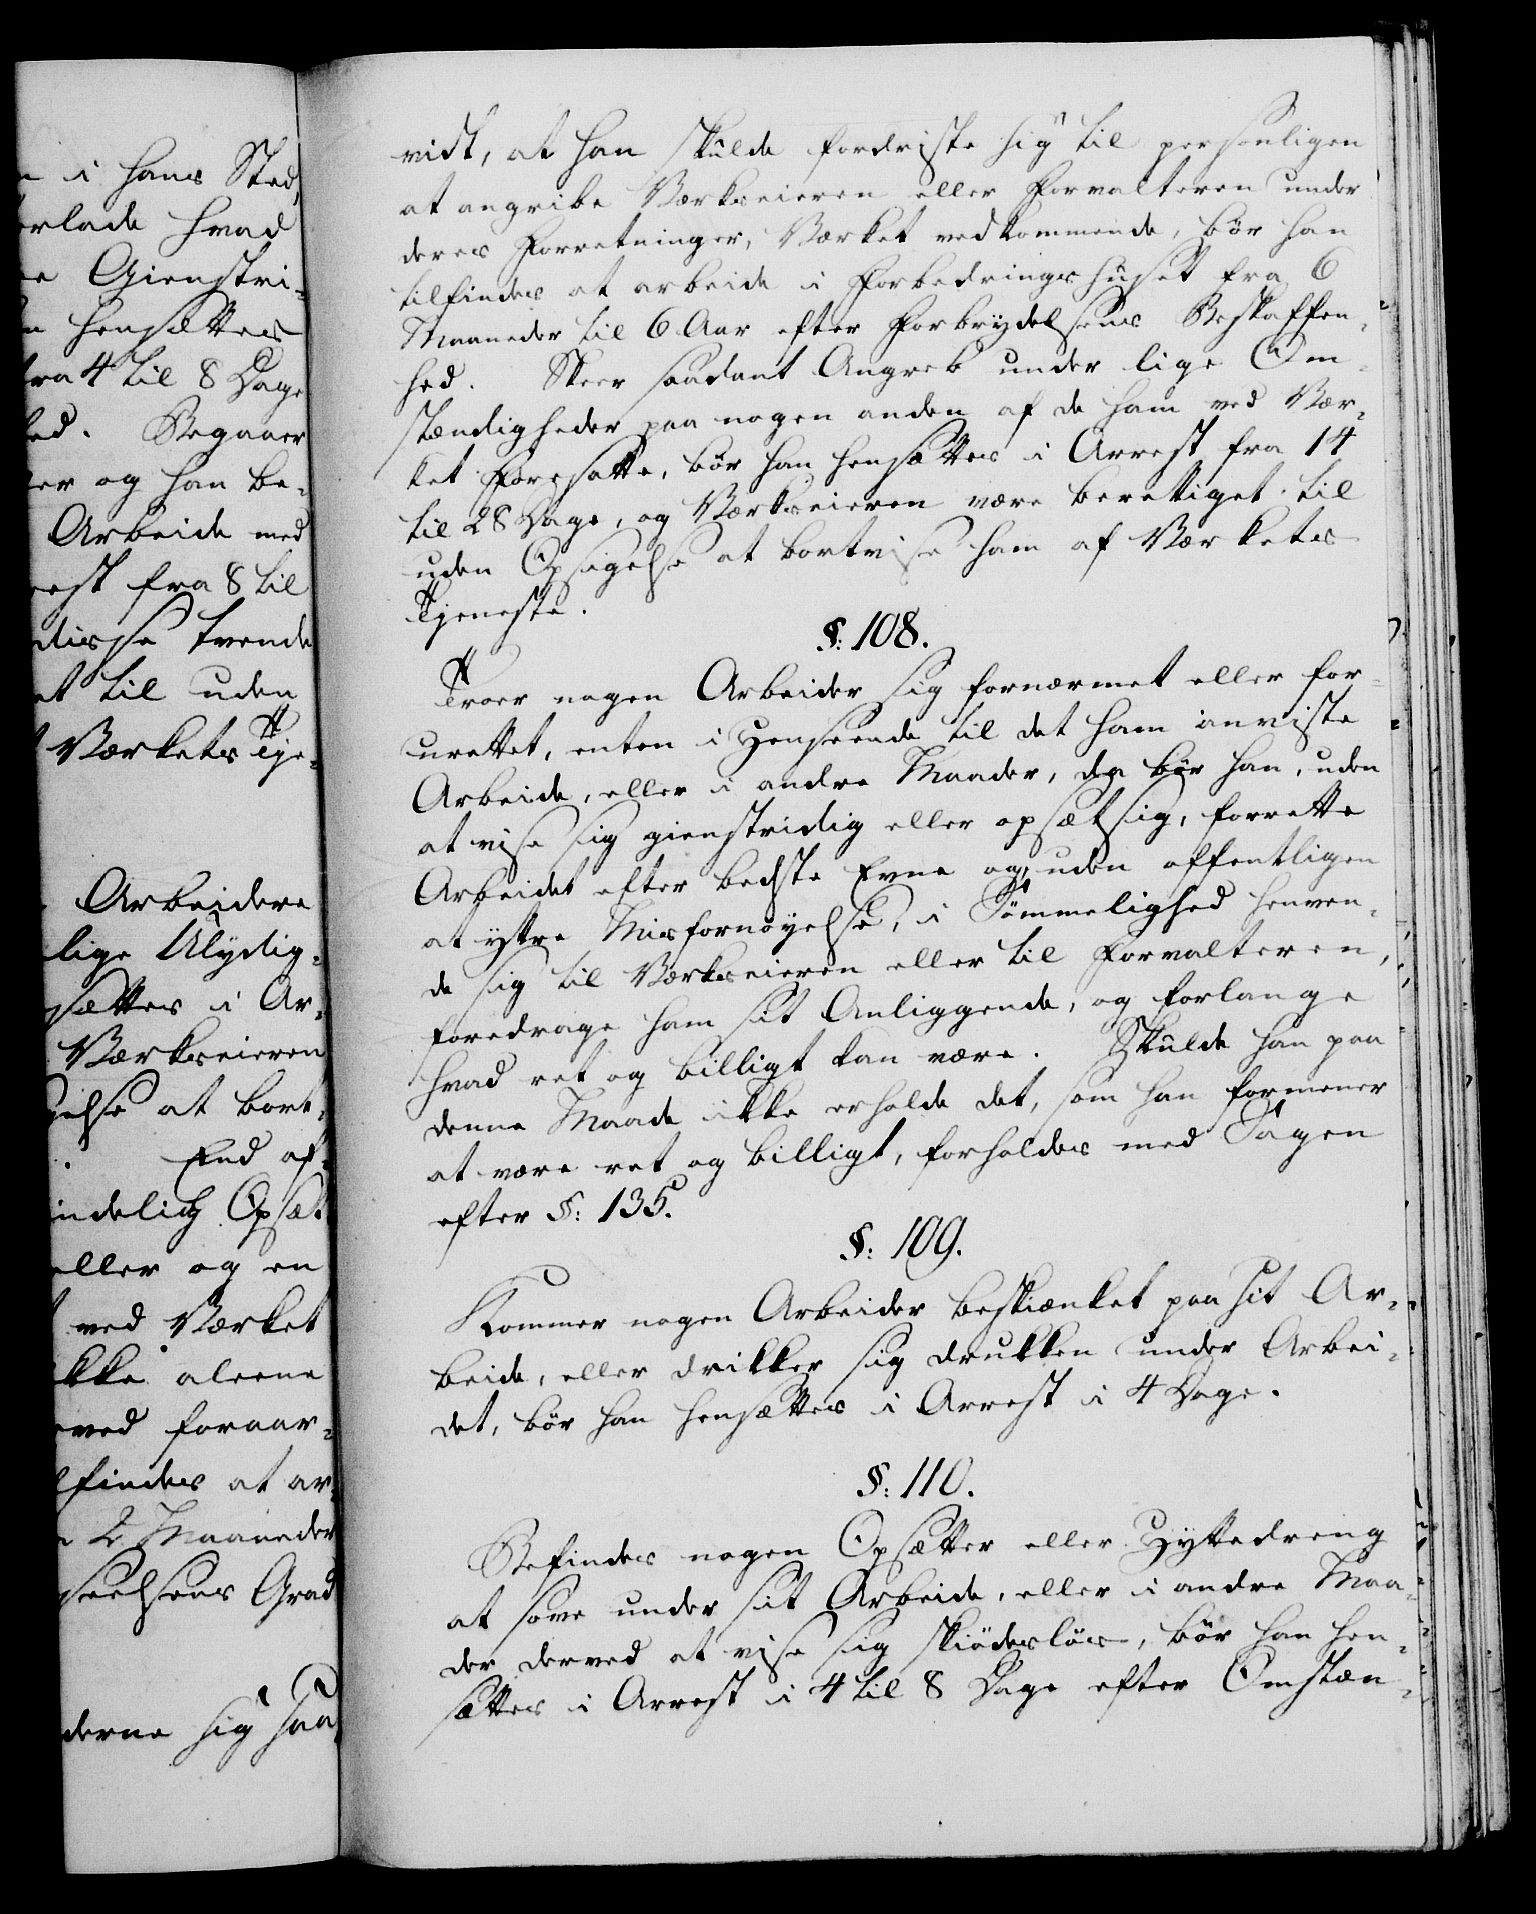 i hans Sted,
erlade hvad
Gienstri-
hensættes
fra 4 til 8 Dage
hed. Begaaer
er og han be-
Arbeide med
rest fra 8 til
disse tvende
et til uden
Værkets Tje-
Arbeidere
lige Ulydig-
sættes i Ar-
Værkseieren
gelse at bort-
End af-
indelig Opsæt
eller og en
ved Værket
ikke aleene
ved foraar-
lfindes at ar-
2 Maaneder
seelsens Grad
derne sig saa
vidt, at han skulde fordriste sig til personligen
at angribe Værkseieren eller Forvalteren under
deres Forretninger, Værket vedkommende, bør han
tilfindes at arbeide i Forbedringshuset fra 6
Maaneder til 6 Aar efter Forbrydelsens Beskaffen-
hed. Skeer saadant Angreb under lige Om-
stændigheder paa nogen anden af de ham ved Vær-
ket foresatte, bør han hensættes i Arrest fra 14
til 28 Dage, og Værkseieren være berettiget til
uden Opsigelse at bortvise ham af Værkets
Tjeneste.
§: 108.
Troer nogen Arbeider sig fornærmet eller for-
urettet, enten i Henseende til det ham anviste
Arbeide, eller i andre Maader, da bør han, uden
at vise sig gienstridig eller opsætsig, forrette
Arbeidet efter bedste Evne og, uden offentligen
at yttre Misfornøyelse, i Sømmelighed henven-
de sig til Værkseieren eller til Forvalteren,
foredrage ham sit Anliggende, og forlange
hvad ret og billigt kan være. Skulde han paa
denne Maade ikke erholde det, som han formener
at være ret og billigt, forholdes med Sagen
efter §: 135.
§: 109.
Kommer nogen Arbeider beskiænket paa sit Ar-
beide, eller drikker sig drukken under Arbei-
det, bør han hensættes i Arrest i 4 Dage.
§: 110.
Befindes nogen Opsætter eller Hyttedreng
at sove under sit Arbeide, eller i andre Maa-
der derved at vise sig skiødesløs, bør han hen-
sættes i Arrest i 4 til 8 Dage efter Omstæn-